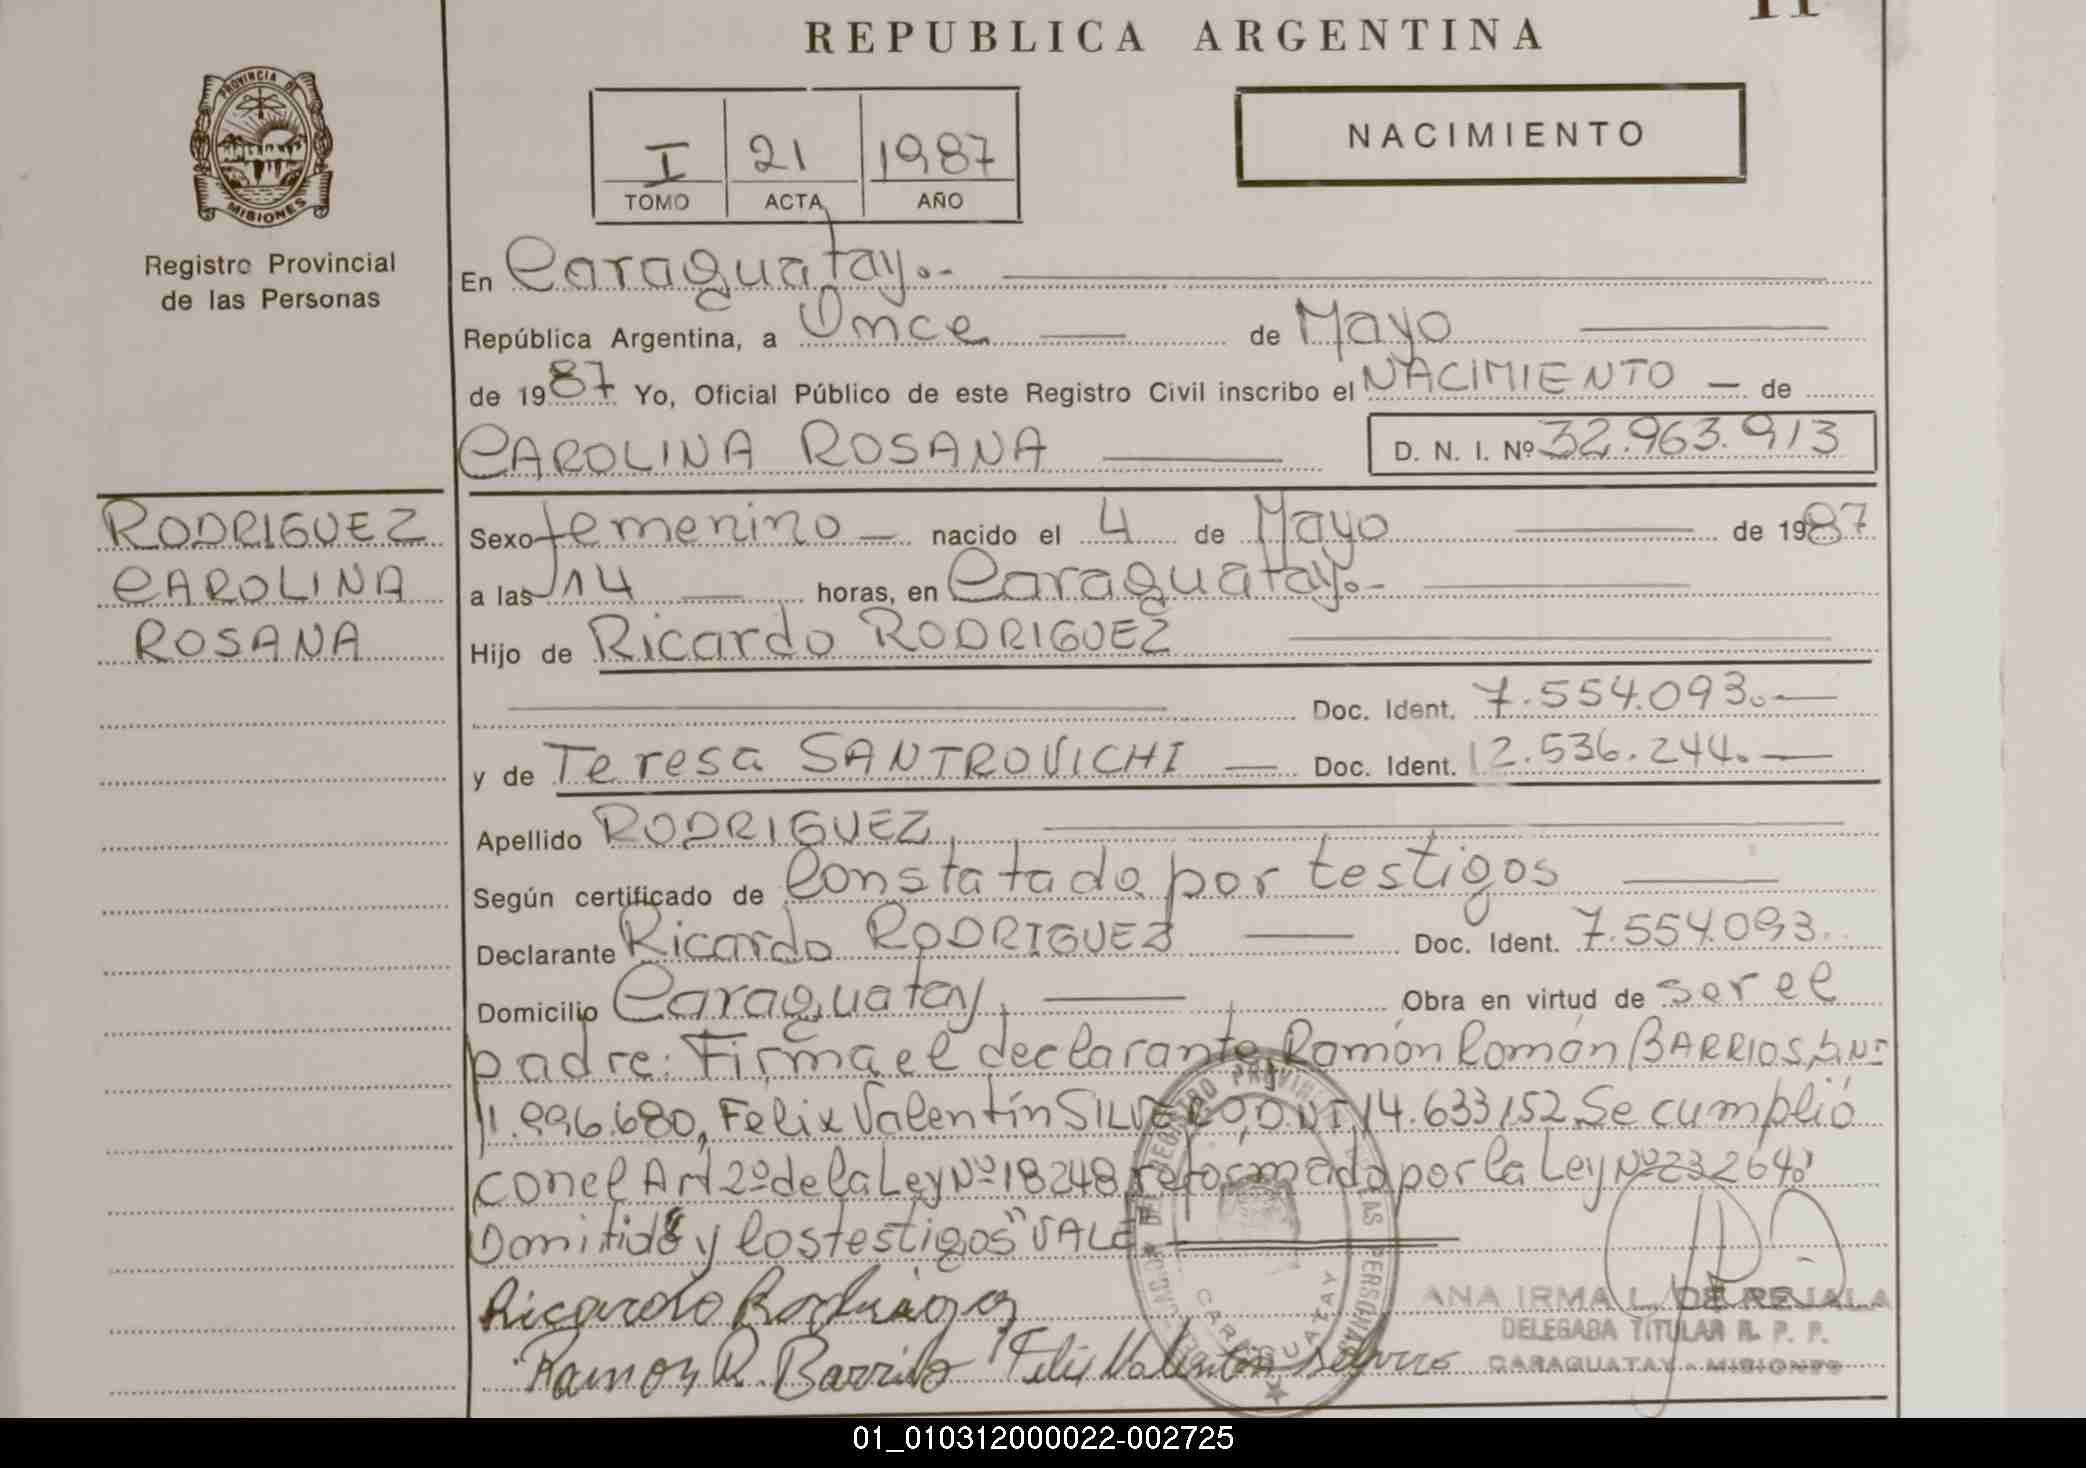 REPUBLICA ARGENTINA
11
PROVINCIA DE
MISIONES
Registro Provincial
de las Personas
I 21 1987
TOMO ACTA AÑO
NACIMIENTO
En Caraguatay.-
República Argentina, a Once de Mayo
de 1987 Yo, Oficial Público de este Registro Civil inscribo el NACIMIENTO — de
CAROLINA ROSANA D. N. I. Nº 32.963.913
RODRIGUEZ
CAROLINA
ROSANA
Sexo femenino — nacido el 4 de Mayo de 1987
a las 14 — horas, en Caraguatay.-
Hijo de Ricardo RODRIGUEZ
Doc. Ident. 7.554.093.—
y de Teresa SANTROVICHI — Doc. Ident. 12.536.244.—
Apellido RODRIGUEZ
Según certificado de Constatado por testigos
Declarante Ricardo RODRIGUEZ — Doc. Ident. 7.554.093.
Domicilio Caraguatay, — Obra en virtud de ser el
padre: Firma el declarante, Ramón Román BARRIOS, D.N.I
.996.680, Felix Valentín SILVERO, D.N.I, 14.633,152, Se cumplió
con el Art 2º de la Ley Nº 18248 reformado por la Ley Nº 23264.
Domitido "y los testigos" VALE
Ricardo Rodriguez
Ramon R. Barrios Felix Valentin Silvero
DEL REGISTRO PROVINCIAL DE LAS PERSONAS
CARAGUATAY
ANA IRMA L. DE REJALA
DELEGADA TITULAR R. P. P.
CARAGUATAY - MISIONES
01_010312000022-002725